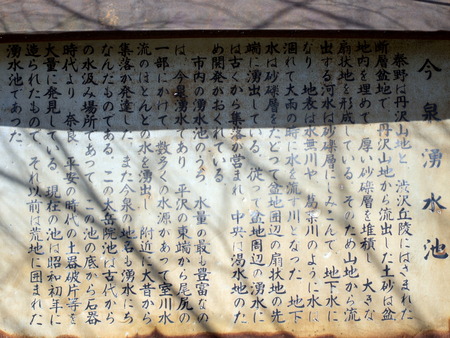 今泉湧水池
秦野は丹沢山地と 渋沢丘陵にはさまれた
断層盆地で 丹沢山地から流出した土砂は盆
地内を埋めて 厚い砂礫層を堆積し 大きな
扇状地を形成している そのため山地から流
出する河水は砂礫層にしみこんで 地下水に
なり 地表は水無川や 葛葉川のように水は
涸れて大雨の時に水を流す川となった 地下
水は砂礫層をたどって盆地周辺の扇状地の先
端に湧出している 従って盆地周辺の湧水に
は古くから集落が営まれ 中央は渇水地のた
め開発がおくれている
市内の湧水池のうち 水量の最も豊富なの
は 今泉湧水であり 平沢の東端から尾尻の
一部にかけて 数多くの水源があって室川水
流のほとんどの水を湧出し 附近に大昔から
集落が発達した また今泉の地名も湧水にち
なんだものである この大岳院池は古代から
の水汲み場所であって この池の底から石器
時代より 奈良 平安の時代の土器破片等を
大量に発見している 現在の池は昭和初年に
造られたもので それ以前は荒地に囲まれた
湧水池であった